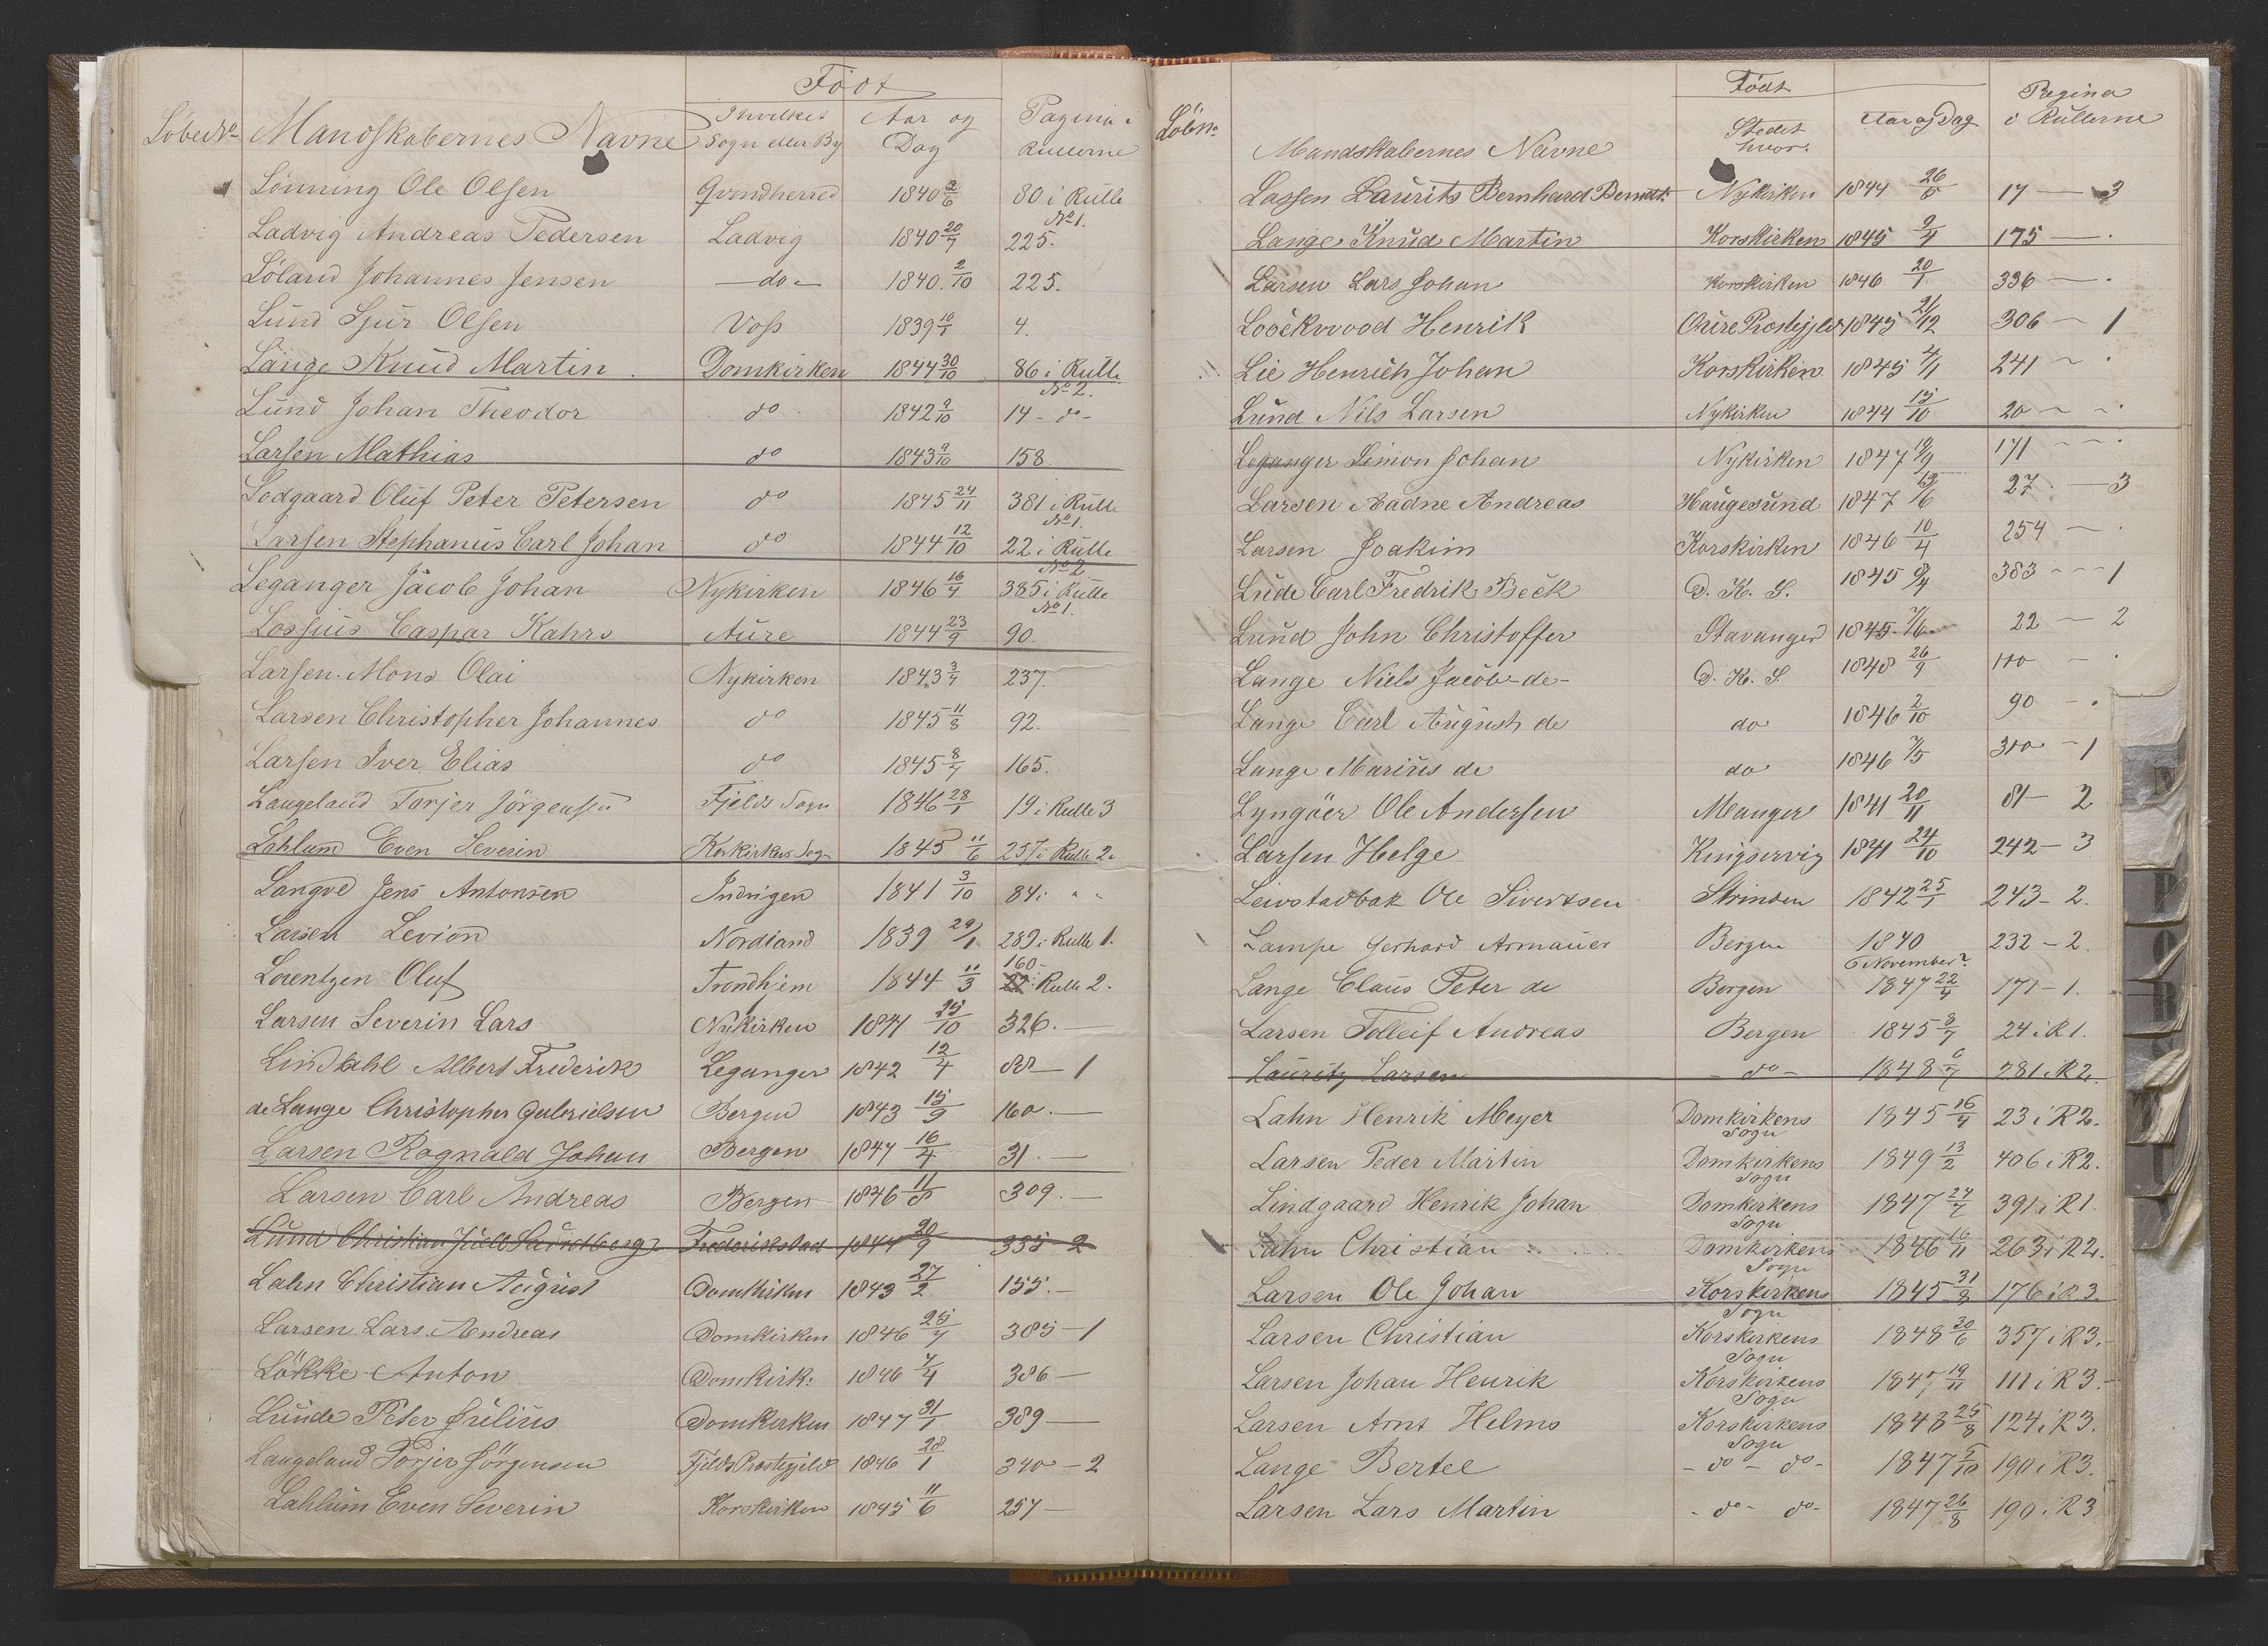 Født
Løbe No Mandskabernes Navne Ihvilket Aar og Pagina i
Sogn eller By Dag Rullerne
Lönning Ole Olsen Qvindherred 1840 2/6 80 i Rulle No 1.
Ladvig Andreas Pedersen Ladvig 1840 20/7 225.
Löland Johannes Jensen — do — 1840. 2/10 225.
Lund Sjur Olsen Voss 1839 4.
Lange Knud Martin Domkirken 1844 30/10 86 i Rulle No 2.
Lund Johan Theodor do 1842 9/10 14 - do -
Larsen Mathias do 1843 9/10 158
Lodgaard Oluf Peter Petersen do 1845 24/11 381 i Rulle No 1.
Larsen Stephanus Carl Johan do 1844 12/10 22 i Rulle No 2
Leganger Jacob Johan Nykirken 1846 16/4 385 i Rulle No 1.
Lossius Caspar Kahrs Aure 1844 23/9 90.
Larsen Mons Olai Nykirken 1843 3/4 237.
Larsen Christopher Johannes do 1845 11/8 92.
Larsen Iver Elias do 1845 8/7 165.
Langeland Torjer Jörgensen Fjelds Sogn 1846 28/1 19 i Rulle 3
Lahlum Even Severin Korskirkens Sogn 1845 11/6 257 i Rulle 2.
Langve Jens Antonsen Indvigen 1841 3/10 84 i " "
Larsen Levion Nordland 1839 29/1 289 i Rulle 1.
Lorentzen Oluf Trondhjem 1844 11/3 160 - Rulle 2.
Larsen Severin Lars Nykirken 1841 25/10 326. —
Lindtahl Albert Frederik Leganger 1842 12/4 88 — 1
de Lange Christopher Gabrielsen Bergen 1843 15/9 160. —
Larsen Rognald Johan Bergen 1847 16/4 31. —
Larsen Carl Andreas Bergen 1846 11/8 309. —
Lund Christian Juell Sandberg Frederikstad 1844 20/9 335 2
Lahn Christian August Domkirken 1843 27/2 155. —
Larsen Lars Andreas Domkirken 1846 25/7 385 — 1
Lökke Anton Domkirk: 1846 7/4 386 —
Lunde Peter Julius Domkirken 1847 31/1 389 —
Langeland Torjer Jörgensen Fjelds Prestegjeld 1846 28/1 340 — 2
Lahlum Even Severin Korskirken 1845 11/6 257 —
Født Pagina
Löbno Mandskabernes Navne Stedet hvor. Aar og Dag i Rullerne
Lassen Laurits Bernhard Berndt: Nykirken 1844 17 — 3
Lange Knud Martin Korskirken 1845 9/4 175 — .
Larsen Lars Johan Korskirken 1846 20/1 336 — .
Lockwood Henrik Aure Prestegjeld 1845 21/12 306 — 1
Lie Henrich Johan Korskirken 1845 4/1 241 — .
Lund Nils Larsen Nykirken 1844 13/10 20 — .
Leganger Simon Johan Nykirken 1847 19/9 171 — .
Larsen Aadne Andreas Haugesund 1847 27. — 3
Larsen Joakim Korskirken 1846 10/4 254 — .
Lude Carl Fredrik Beck D. K. S. 1845 383 — 1
Lund John Christoffer Stavanger 1845 7/6 22 — 2
Lange Niels Jacob - de - D. K. S. 1848 26/9 — .
Lange Carl August de do 1846 2/10 90 — .
Lange Marius de do 1846 7/5 — 1
Lyngöer Ole Andersen Manger 1841 20/11 81 — 2
Larsen Helge Kingservig 1841 24/10 242 — 3
Leivstadbak Ole Sivertsen Strinden 1842 25/1 243 — 2.
Lampe Gerhard Armauer Bergen 1840 6 November? 232 — 2.
Lange Claus Peter de Bergen 1847 22/4 171 — 1.
Larsen Tolleif Andreas Bergen 1845 8/7 24 i R 1.
Lauritz Larsen - do - 1848 6/7 281 i R 2.
Lahn Henrik Meyer Domkirkens Sogn 1845 16/4 23 i R 2.
Larsen Peder Martin Domkirkens Sogn 1849 13/2 406 i R 2.
Lindgaard Henrik Johan Domkirkens Sogn 1847 24/7 391 i R 1.
Lahn Christian Domkirkens Sogn 1846 16/11 263 i R 2.
Larsen Ole Johan Korskirkens Sogn 1845 31/8 176 i R 3.
Larsen Christian Korskirkens Sogn 1848 30/6 357 i R 3.
Larsen Johan Henrik Korskirkens Sogn 1847 19/11 111 i R 3.
Larsen Arnt Helms Korskirkens Sogn 1848 25/8 124 i R 3.
Lange Bertel - do - do - 1847 5/10 190 i R 3.
Larsen Lars Martin - do - do - 1847 26/8 190 i R 3